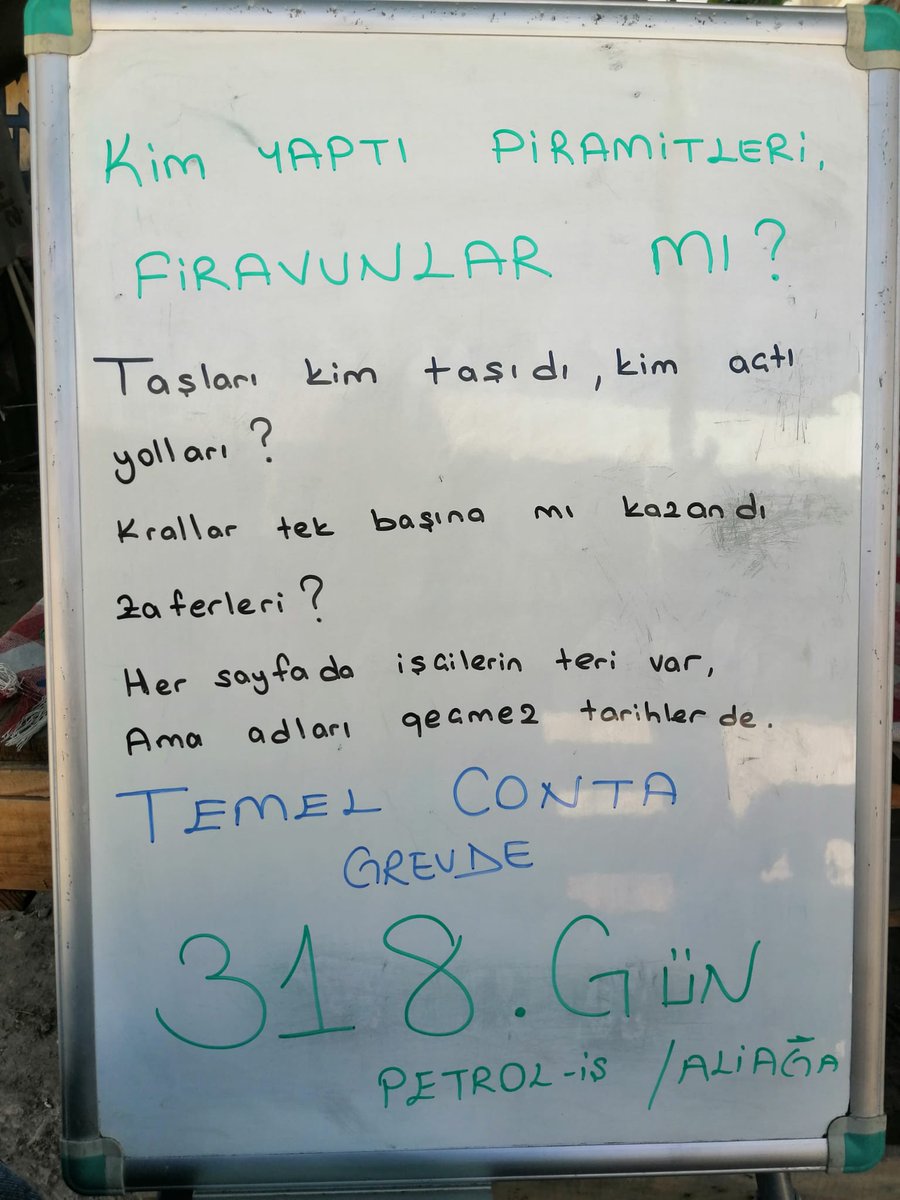 Kim YAPTI PiRAMiTLERi,
FiRAVUNLAR MI?
Taşları kim taşıdı, kim açtı
yolları?
Krallar tek başına mı kazandı
zaferleri?
Her sayfada işçilerin teri var,
Ama adları geçmez tarihlerde.
TEMEL CONTA
GREVDE
318. GÜN
PETROL-iŞ /ALiAĞA